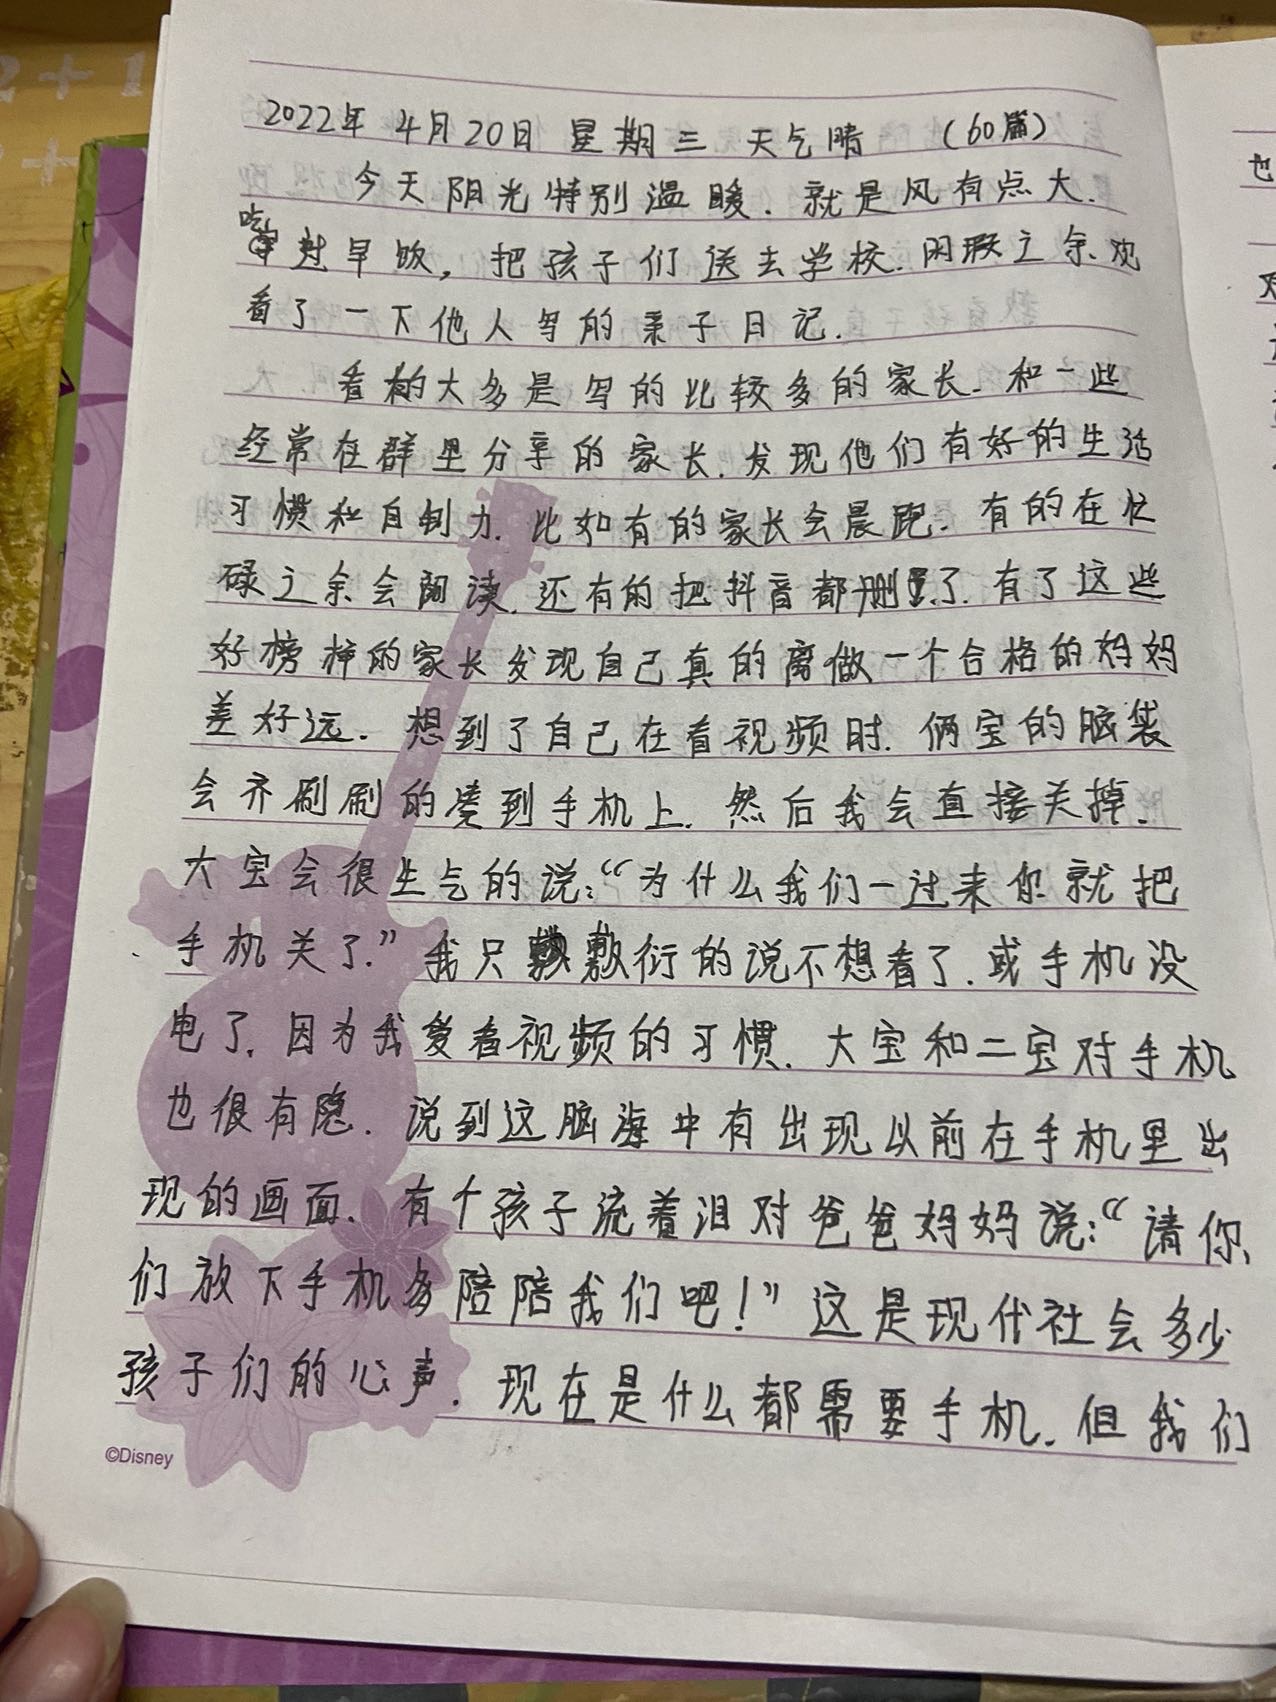 2022年 4月20日 星期三 天气晴 (60篇)
今天阳光特别温暖.就是风有点大.
吃过早饭,把孩子们送去学校.闲瑕之余.观
看了一下他人写的亲子日记.
看的大多是写的比较多的家长.和一些
经常在群里分享的家长.发现他们有好的生活
习惯和自制力.比如有的家长会晨跑.有的在忙
碌之余会阅读.还有的把抖音都删了.有了这些
好榜样的家长发现自己真的离做一个合格的妈妈
差好远.想到了自己在看视频时.俩宝的脑袋
会齐刷刷的凑到手机上.然后我会直接关掉.
大宝会很生气的说:“为什么我们一过来你就把
手机关了.”我只敷衍的说不想看了.或手机没
电了.因为我爱看视频的习惯.大宝和二宝对手机
也很有隐.说到这脑海中有出现以前在手机里出
现的画面.有个孩子流着泪对爸爸妈妈说:“请你
们放下手机多陪陪我们吧!”这是现代社会多少
孩子们的心声.现在是什么都需要手机.但我们
©Disney
也